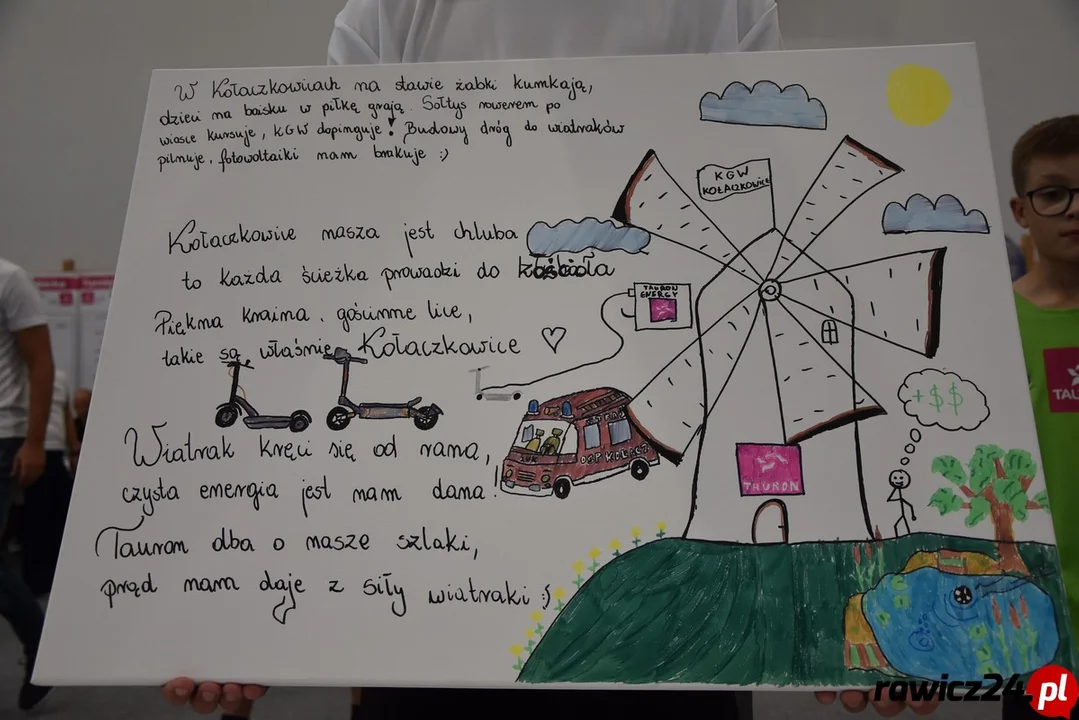 W Kołaczkowicach na stawie żabki kumkają,
dzieci na boisku w piłkę grają. Sołtys rowerem po
wiosce kursuje, KGW dopinguje! Budowy dróg do wiatraków
pilnuje, fotowoltaiki nam brakuje :)
KGW
KOŁACZKOWICE
Kołaczkowice nasza jest chluba
to każda ścieżka prowadzi do
TAURON
ENERGY
Piękna kraina, gościnne lice,
takie są właśnie Kołaczkowice
+$$
Wiatrak kręci się od rana,
czysta energia jest nam dana!
TAURON
Tauron dba o nasze szlaki,
prąd nam daje z siły wiatraki :)
TAU
rawicz24.pl